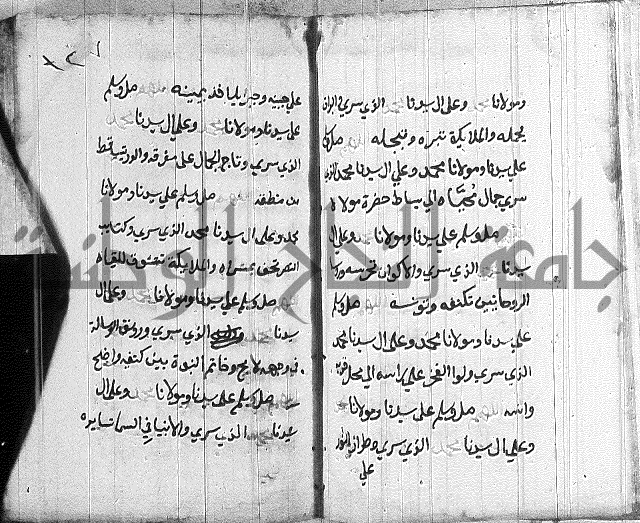 ومولانا محمد وعلى ال سيدنا محمد الذي سري البراق
يحمله والملايكة تبره وتبجله صل
على سيدنا ومولانا محمد وعلي ال سيدنا محمد الذي
سري جمال الي بساط حضرة مولاه
صل وسلم على سيدنا ومولانا وعلى ال
سيدنا الذي سري والاكوان تحرسه
الروحانيين تكنفه وتونسه اللهم صل وسلم
على سيدنا ومولانا محمد وعلى ال سيدنا محمد
الذي سري ولوا الفخر على راسه الي محل قربه
وانسه اللهم صل وسلم على سيدنا ومولانا
وعلى ال سيدنا محمد الذي سري وطراز النور
علي
علي جبينه وجبرايل قد يمينه اللهم صل وسلم
على سيدنا ومولانا محمد وعلي ال سيدنا محمد
الذي سري وتاج الجمال على مفرقه والورد يتساقط
من منطقه اللهم صل وسلم علي سيدنا ومولانا
محمد وعلى ال سيدنا محمد الذي سري وكتايب
النصر تحف بمسراه والملايكة تتشوف للقياه
اللهم صل وسلم علي سيدنا ومولانا محمد وعلى ال
سيدنا محمد الذي سري ورونق الرسالة
في وجهه لايح وخاتم النبوة بين كتفيه واضح
اللهم صل وسلم على سيدنا ومولانا محمد وعلى ال
سيدنا محمد الذي سري والانبيا في السما تسايره
جامعة الحاج